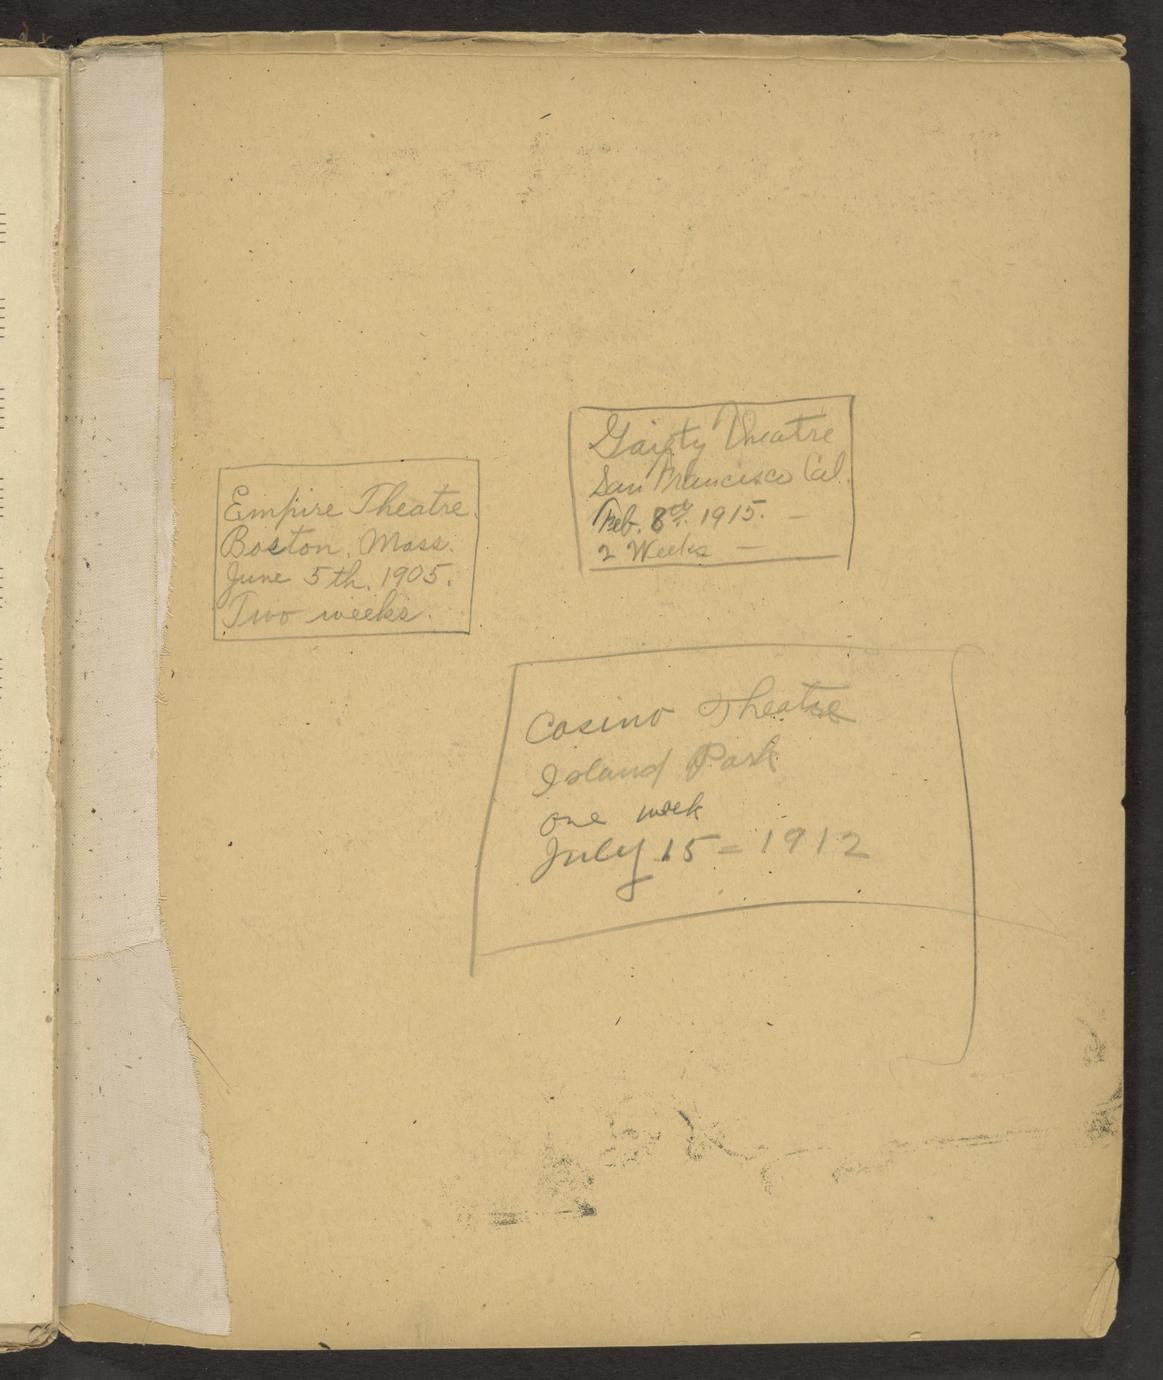 Empire Theatre.
Boston, Mass.
June 5th. 1905.
Two weeks.
Gaiety Theatre
San Francisco Cal.
Feb. 8th. 1915. —
2 Weeks —
Casino Theatre
Island Park
one week
July 15 = 1912